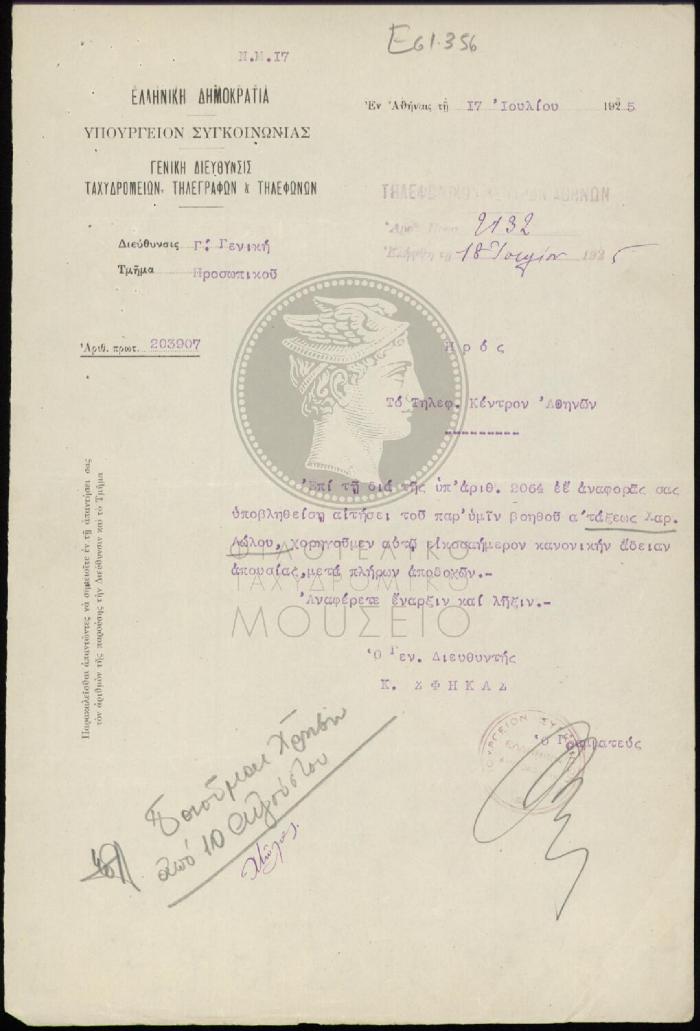 E61.356
Ν.Μ.17
ΕΛΛΗΝΙΚΗ ΔΗΜΟΚΡΑΤΙΑ
ΥΠΟΥΡΓΕΙΟΝ ΣΥΓΚΟΙΝΩΝΙΑΣ
ΓΕΝΙΚΗ ΔΙΕΥΘΥΝΣΙΣ
ΤΑΧΥΔΡΟΜΕΙΩΝ, ΤΗΛΕΓΡΑΦΩΝ & ΤΗΛΕΦΩΝΩΝ
Ἐν Ἀθήναις τῇ 17 Ἰουλίου 1925
ΤΗΛΕΦΩΝΙΚΟΝ ΚΕΝΤΡΟΝ ΑΘΗΝΩΝ
Ἀριθ. Πρωτ. 2132
Ἐλήφθη τῇ 18 Ἰουλίου 1925
Διεύθυνσις Γ. Γενική
Τμῆμα Προσωπικοῦ
Ἀριθ. πρωτ. 203907
Πρός
Τό Τηλεφ. Κέντρον Ἀθηνῶν
---------
Ἐπί τῇ διά τῆς ὑπ'ἀριθ. 2064 ἐ.ἔ ἀναφορᾶς σας
ὑποβληθείσῃ αἰτήσει τοῦ παρ'ὑμῖν βοηθοῦ α'τάξεως Χαρ.
Λώλου, χορηγοῦμεν αὐτῷ εἰκοσαήμερον κανονικήν ἄδειαν
ἀπουσίας μετά πλήρων ἀποδοχῶν.-
Ἀναφέρετε ἔναρξιν καί λῆξιν.-
Ὁ Γεν. Διευθυντής
Κ. ΣΦΗΚΑΣ
Ὁ Γραμματεύς
Παρακαλεῖσθαι ἀπαντῶντες νὰ σημειοῦτε ἐν τῇ ἀπαντήσει σας
τὸν ἀριθμὸν τῆς παρούσης τὴν Διεύθυνσιν καὶ τὸ Τμῆμα
Ποιοῦμαι χρῆσιν
ἀπό 10 Αὐγούστου
ΦΙΛΟΤΕΛΙΚΟ
ΤΑΧΥΔΡΟΜΙΚΟ
ΜΟΥΣΕΙΟ